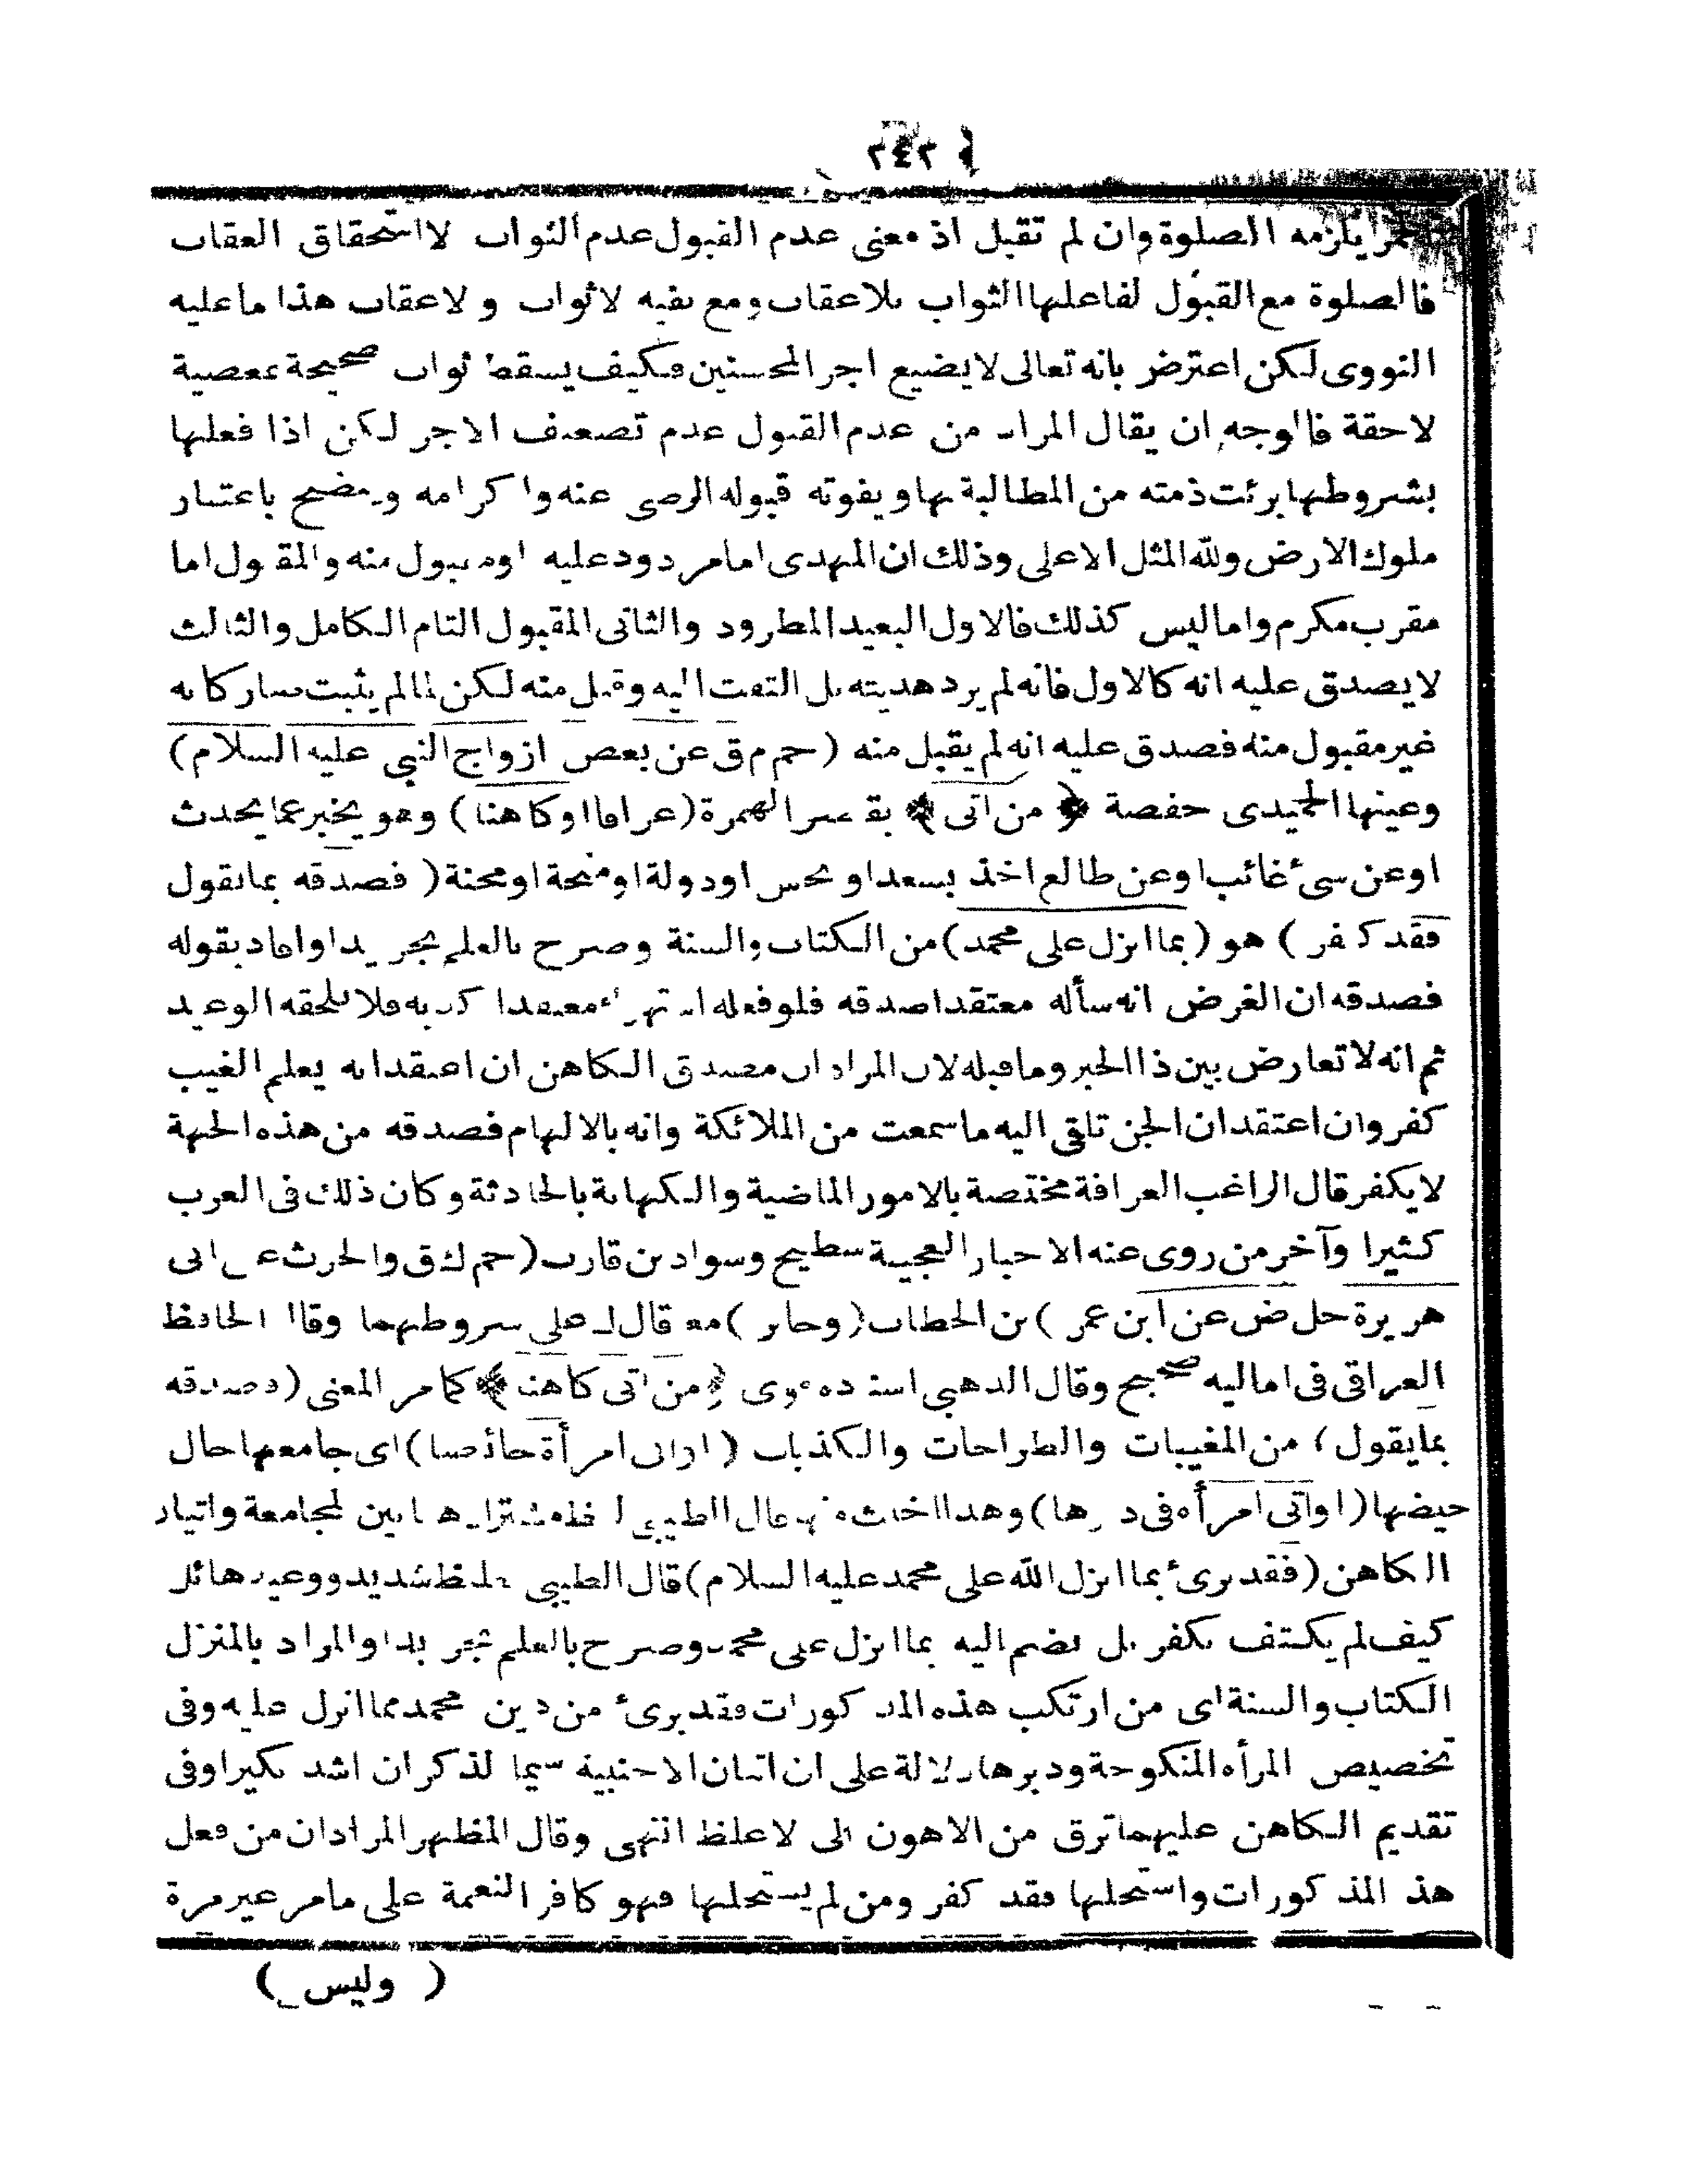 ﴿ ٢٤٢
يلزمه الصلوة وان لم تقبل اذ معنى عدم القبول عدم الثواب لا استحقاق العقاب
فالصلوة مع القبول لفاعلها الثواب بلا عقاب ومع نفيه لا ثواب ولا عقاب هذا ما عليه
النووى لكن اعترض بانه تعالى لا يضيع اجر المحسنين فكيف يسقط ثواب صحيحة بمعصية
لاحقة فالاوجه ان يقال المراد من عدم القبول عدم تضعيف الاجر لكن اذا فعلها
بشروطها برئت ذمته من المطالبة بها ويفوته قبوله الرضى عنه واكرامه ويتضح باعتبار
ملوك الارض ولله المثل الاعلى وذلك ان المهدى اما مردود عليه او مقبول منه والمقبول اما
مقرب مكرم واما ليس كذلك فالاول البعيد المطرود والثانى المقبول التام الكامل والثالث
لا يصدق عليه انه كالاول فانه لم يرد هديته بل التفت اليه وقبل منه لكن لما لم يثبت صار كانه
غير مقبول منه فصدق عليه انه لم يقبل منه (حم م ق عن بعض ازواج النبي عليه السلام)
وعينها الحميدى حفصة ﴿ من اتى ﴾ بقصر الهمزة (عرافا اوكاهنا) وهو يخبر عما يحدث
او عن شىء غائب او عن طالع اخذ بسعد او نحس او دولة او منحة او محنة ( فصدقه بما يقول
فقد كفر ) هو (بما انزل على محمد) من الكتاب والسنة وصرح بالعلم تجريدا وافاد بقوله
فصدقه ان الغرض انه سأله معتقدا صدقه فلو فعله استهزاء معتقدا كذبه فلا يلحقه الوعيد
ثم انه لا تعارض بين ذا الخبر وما قبله لان المراد ان مصدق الكاهن ان اعتقد انه يعلم الغيب
كفر وان اعتقد ان الجن تلقى اليه ما سمعت من الملائكة وانه بالالهام فصدقه من هذه الجهة
لا يكفر قال الراغب العرافة مختصة بالامور الماضية والكهانة بالحادثة وكان ذلك فى العرب
كثيرا وآخر من روى عنه الاخبار العجيبة سطيح وسواد بن قارب (حم ك ق والحرث عن ابى
هريرة حل ض عن ابن عمر ) بن الخطاب (وجابر ) معه قال ك على شروطهما وقال الحافظ
العراقى فى اماليه صحيح وقال الذهبي اسناده قوى ﴿ من اتى كاهنا ﴾ كما مر المعنى (فصدقه
بما يقول ) من المغيبات والطراحات والكذبات ( او اتى امرأة حائضا) اى جامعها حال
حيضها (او اتى امرأه فى دبرها) وهذا اخبث منه قال الطيبى لفظ مشترك هنا بين المجامعة واتيان
الكاهن (فقد برىء بما انزل الله على محمد عليه السلام) قال الطيبى تغليظ شديد ووعيد هائل
كيف لم يكتف بكفر بل ضم اليه بما انزل على محمد وصرح بالعلم تجريدا والمراد بالمنزل
الكتاب والسنة اى من ارتكب هذه المذكورات فقد برىء من دين محمد مما انزل عليه وفى
تخصيص المرأه المنكوحة ودبرها دلالة على ان اتيان الاجنبية سيما لذكران اشد نكيرا وفى
تقديم الكاهن عليهما ترق من الاهون الى لاغلظ انتهى وقال المظهر المراد ان من فعل
هذ المذكورات واستحلها فقد كفر ومن لم يستحلها فهو كافر النعمة على ما مر غير مرة
( وليس )